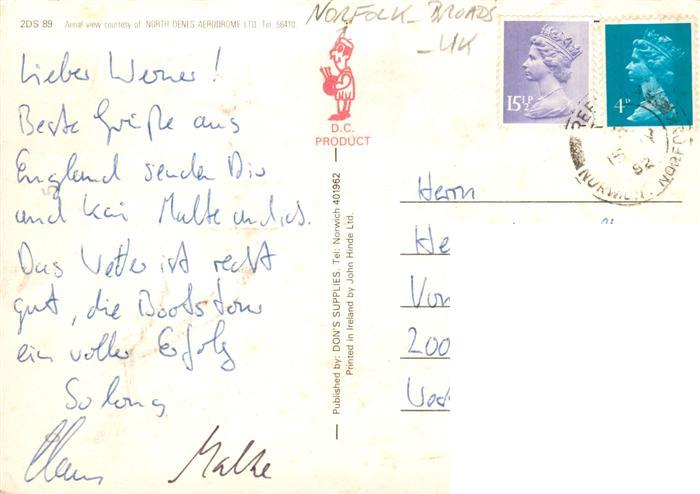 2DS 89 Aerial view courtesy of NORTH DENES AERODROME LTD. Tel: 56410.
NORFOLK - BROADS
- UK
Lieber Werner!
Beste Grüße aus
England senden Dir
und Kai Malte und ich.
Das Wetter ist recht
gut, die Bootstour
ein voller Erfolg
So long
Claus Malte
D.C.
PRODUCT
Published by: DON'S SUPPLIES. Tel: Norwich 401962
Printed in Ireland by John Hinde Ltd.
15½P
4P
NORWICH NORFOLK
82
Herrn
He
Von
200